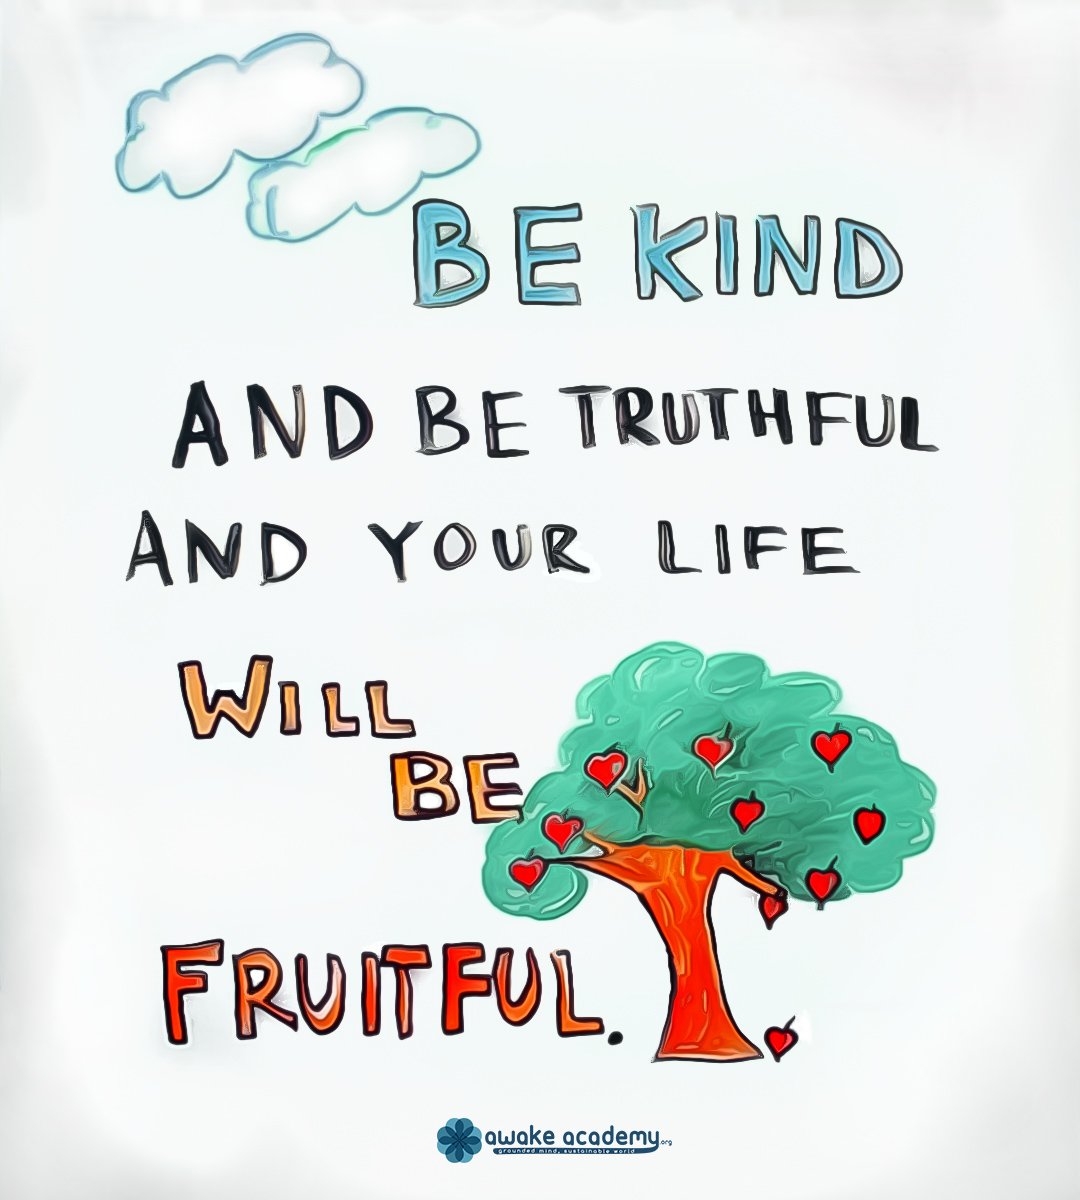 BE KIND
AND BE TRUTHFUL
AND YOUR LIFE
WILL
BE
FRUITFUL.
awake academy.org
grounded mind, sustainable world